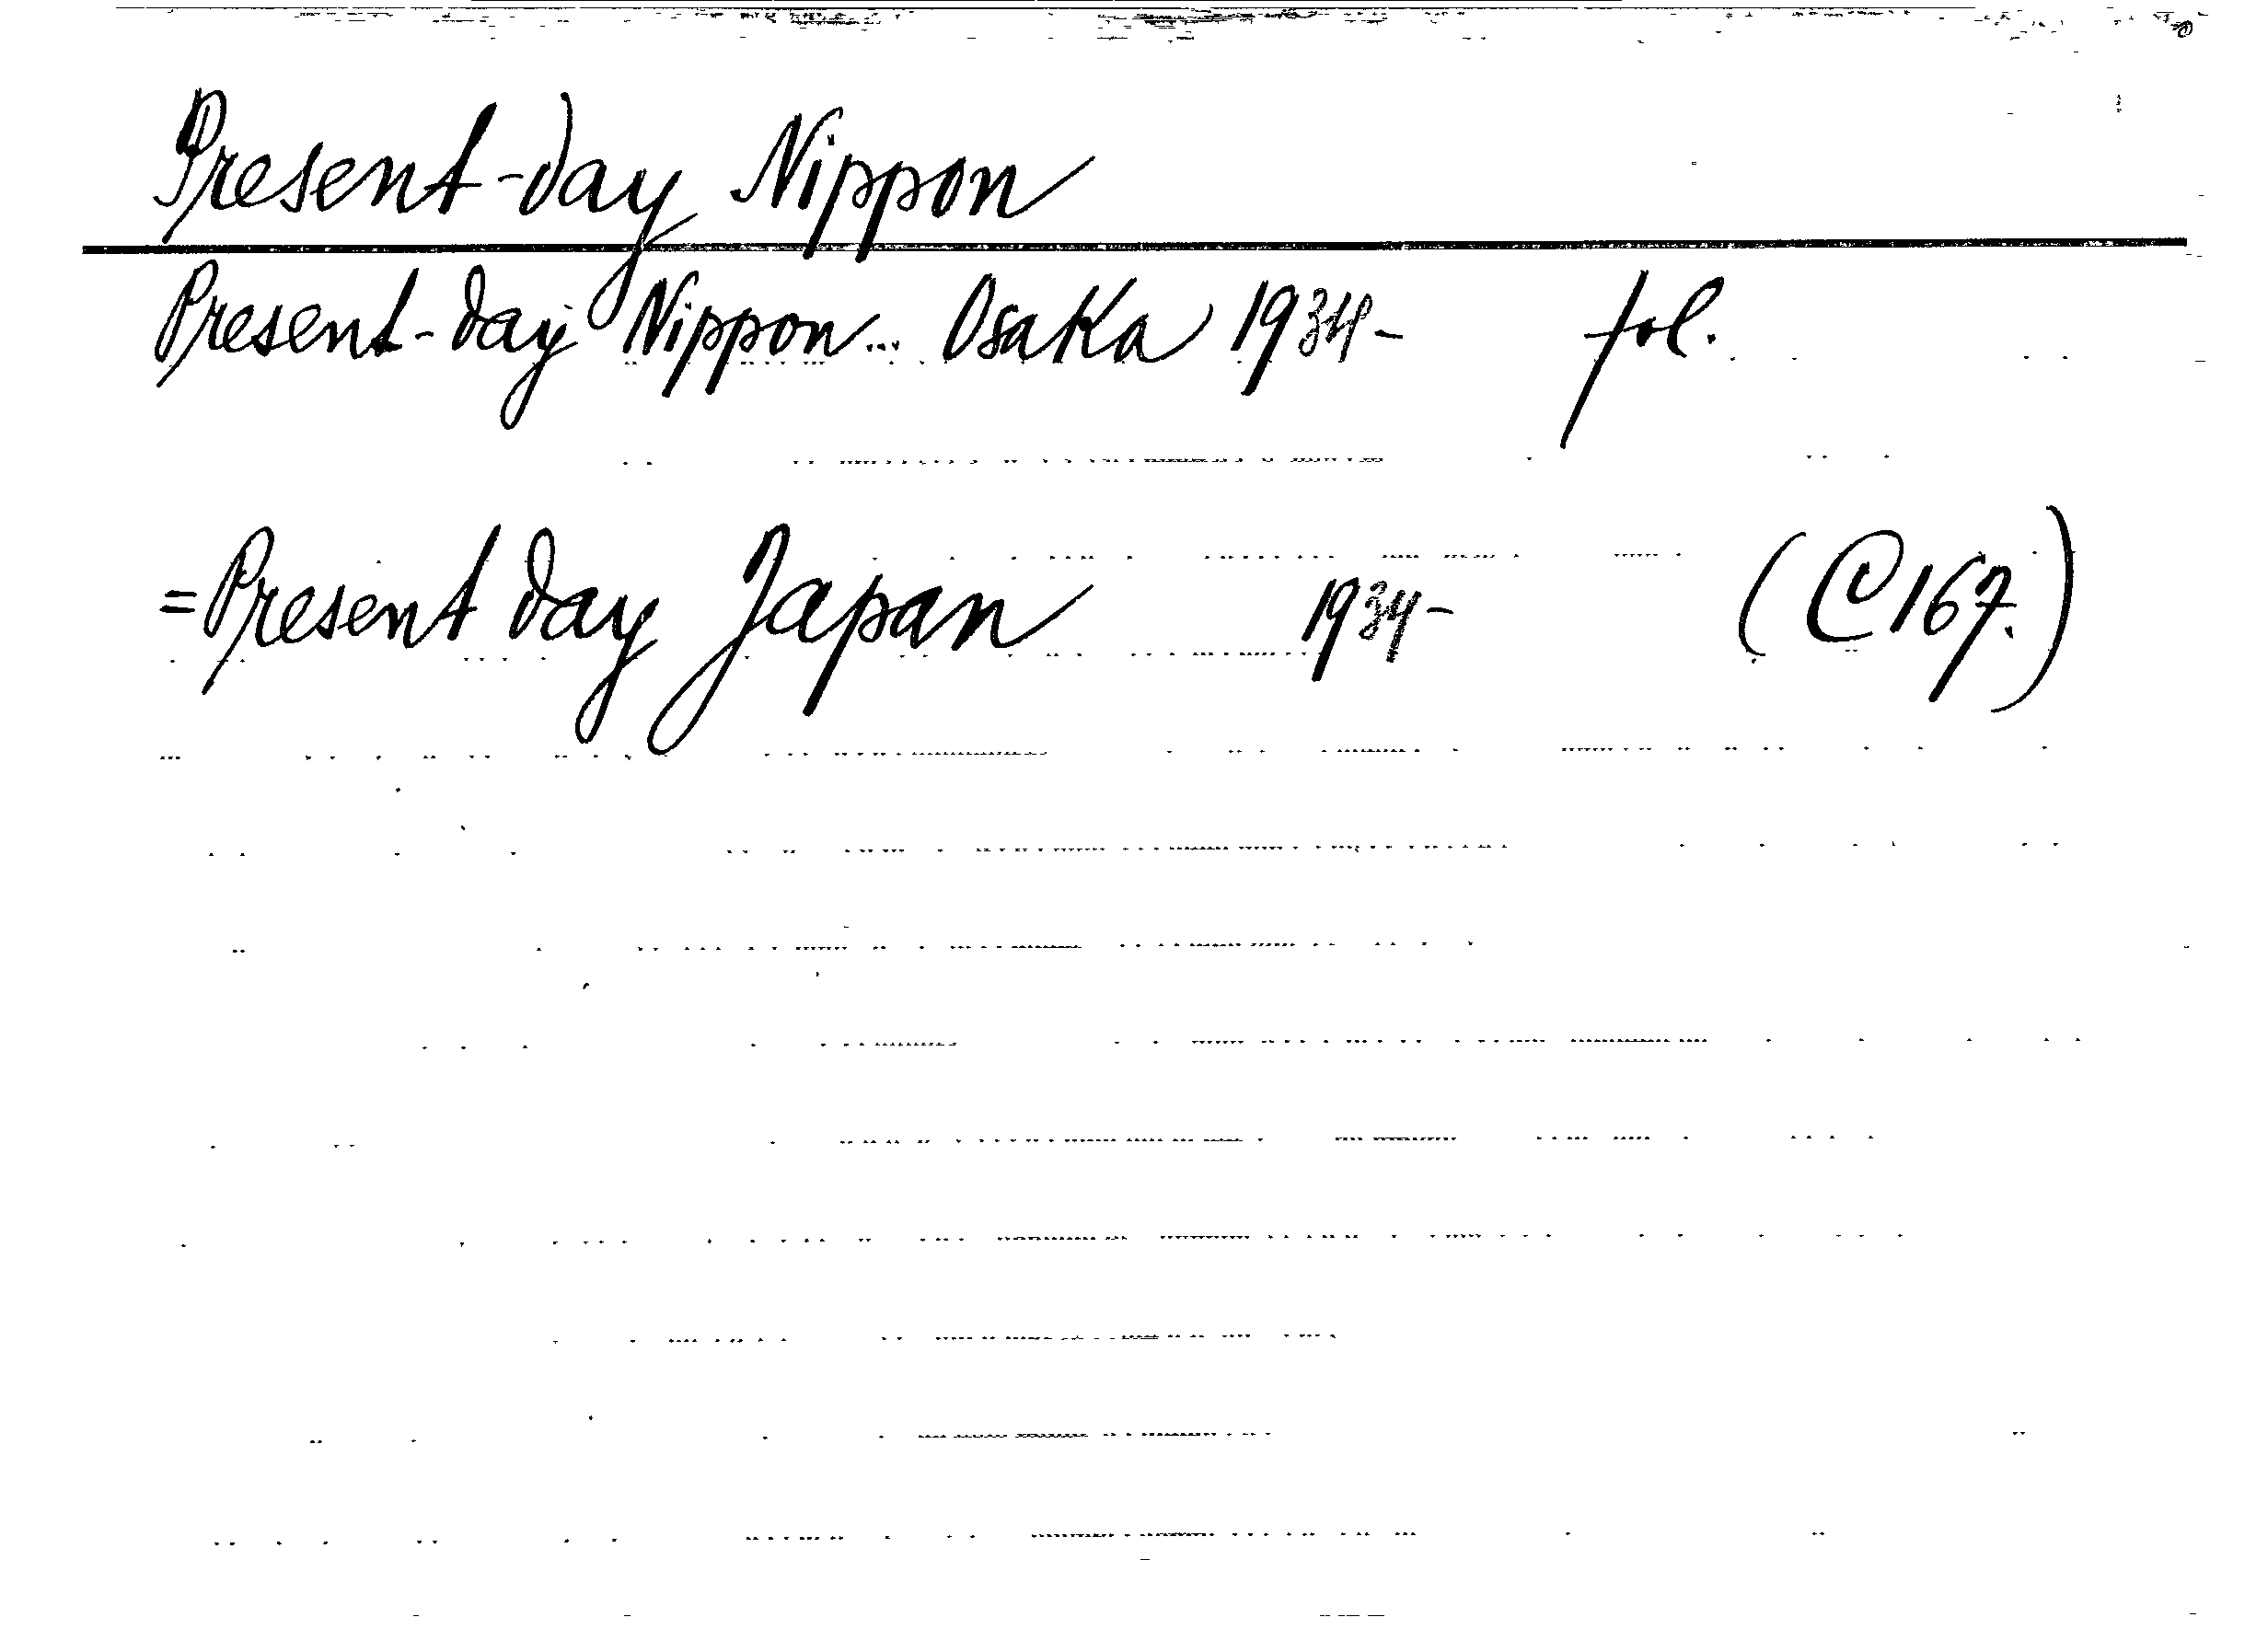 Present-day Nippon
Present-day Nippon... Osaka 1934- fol.
=Present day Japan 1934- (C167.)